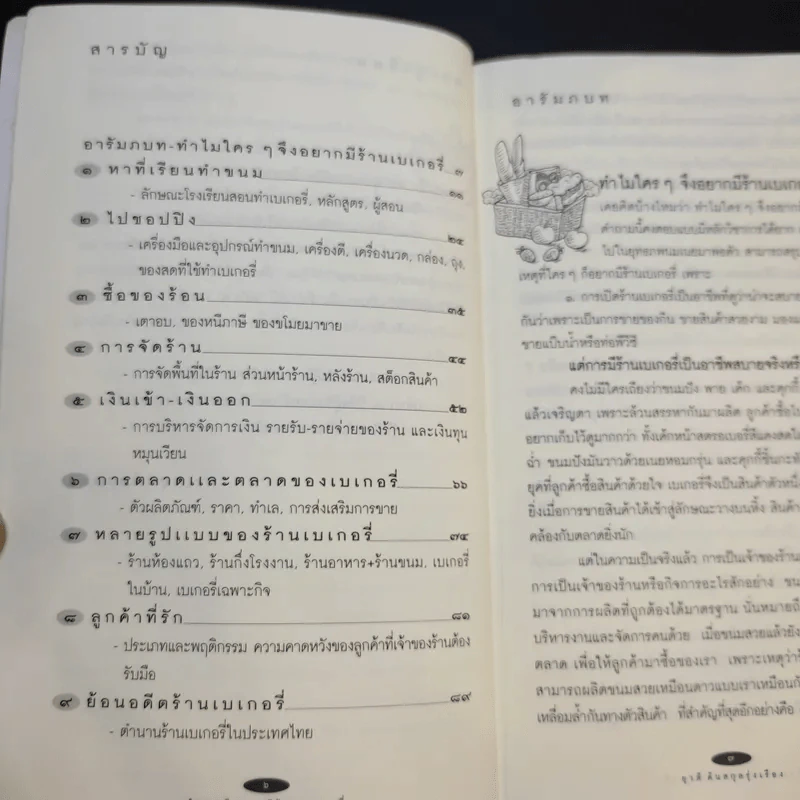 สารบัญ
อารัมภบท-ทำไมใคร ๆ จึงอยากมีร้านเบเกอรี่ ๗
๑ หาที่เรียนทำขนม ๑๑
- ลักษณะโรงเรียนสอนทำเบเกอรี่, หลักสูตร, ผู้สอน
๒ ไปชอปปิง ๒๔
- เครื่องมือและอุปกรณ์ทำขนม, เครื่องตี, เครื่องนวด, กล่อง, ถุง,
ของสดที่ใช้ทำเบเกอรี่
๓ ซื้อของร้อน ๓๕
- เตาอบ, ของหนีภาษี ของขโมยมาขาย
๔ การจัดร้าน ๔๔
- การจัดพื้นที่ในร้าน ส่วนหน้าร้าน, หลังร้าน, สต็อกสินค้า
๕ เงินเข้า-เงินออก ๕๒
- การบริหารจัดการเงิน รายรับ-รายจ่ายของร้าน และเงินทุน
หมุนเวียน
๖ การตลาดและตลาดของเบเกอรี่ ๖๖
- ตัวผลิตภัณฑ์, ราคา, ทำเล, การส่งเสริมการขาย
๗ หลายรูปแบบของร้านเบเกอรี่ ๗๔
- ร้านห้องแถว, ร้านกึ่งโรงงาน, ร้านอาหาร+ร้านขนม, เบเกอรี่
ในบ้าน, เบเกอรี่เฉพาะกิจ
๘ ลูกค้าที่รัก ๘๑
- ประเภทและพฤติกรรม ความคาดหวังของลูกค้าที่เจ้าของร้านต้อง
รับมือ
๙ ย้อนอดีตร้านเบเกอรี่ ๘๙
- ตำนานร้านเบเกอรี่ในประเทศไทย
๖
อารัมภบท
ทำไมใคร ๆ จึงอยากมีร้านเบเกอ
เคยคิดบ้างไหมว่า ทำไมใคร ๆ จึงอยากมี
คำถามนี้คงตอบแบบมีหลักวิชาการได้ยาก
ไปในยุทธภพนมเนยมาพอตัว สามารถสรุป
เหตุที่ใคร ๆ ก็อยากมีร้านเบเกอรี่ เพราะ
๑. การเปิดร้านเบเกอรี่เป็นอาชีพที่ดูว่าน่าจะสบาย
กันว่าเพราะเป็นการขายของกิน ขายสินค้าสวยงาม
ขายแป๊บน้ำหรือท่อพีวีซี
แต่การมีร้านเบเกอรี่เป็นอาชีพสบายจริงหรือ
คงไม่มีใครเถียงว่าขนมปัง พาย เค้ก และคุกกี้
แล้วเจริญตา เพราะล้วนสรรหากันมาผลิต ลูกค้าซื้อไป
อยากเก็บไว้ดูมากกว่า ทั้งเค้กหน้าสตรอเบอรี่สีแดงสดใส
ฉ่ำ ขนมปังมันวาวด้วยเนยหอมกรุ่น และคุกกี้ชิ้นกะทัด
ยุคที่ลูกค้าซื้อสินค้าด้วยใจ เบเกอรี่จึงเป็นสินค้าตัวหนึ่ง
ยิ่งเมื่อการขายสินค้าได้เข้าสู่ลักษณะวางบนหิ้ง สินค้า
คล้องกับตลาดยิ่งนัก
แต่ในความเป็นจริงแล้ว การเป็นเจ้าของร้าน
การเป็นเจ้าของร้านหรือกิจการอะไรสักอย่าง
มาจากการผลิตที่ถูกต้องได้มาตรฐาน นั่นหมายถึง
บริหารงานและจัดการคนด้วย เมื่อขนมสวยแล้วยัง
ตลาด เพื่อให้ลูกค้ามาซื้อของเรา เพราะเหตุว่า
สามารถผลิตขนมสวยเหมือนดาวแบบเราเหมือนกัน
เหลื่อมล้ำกันทางตัวสินค้า ที่สำคัญที่สุดอีกอย่างคือ
๗